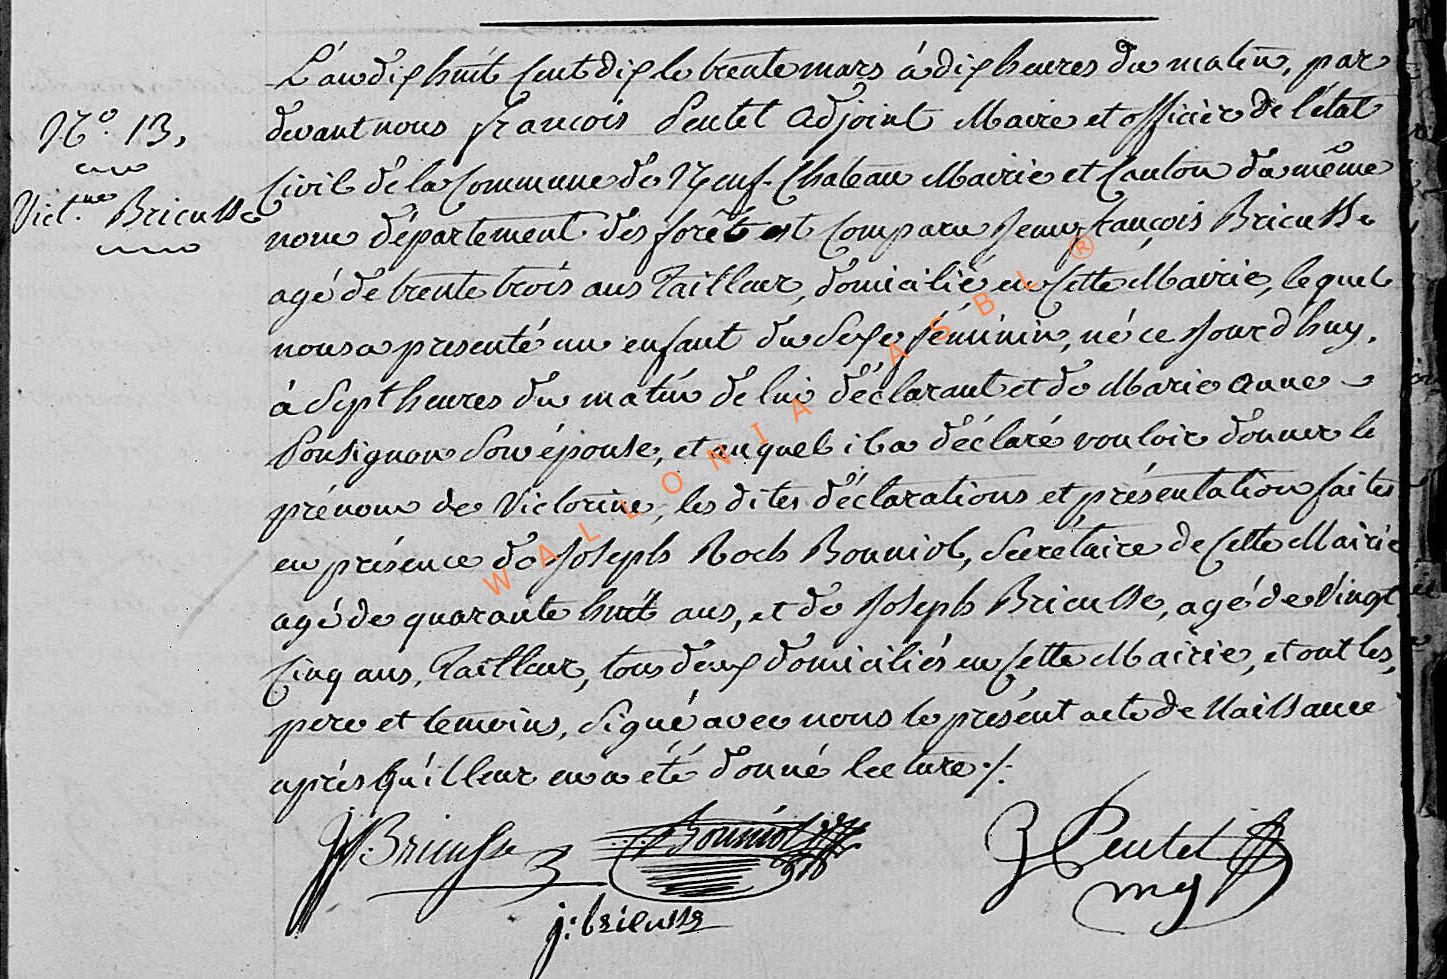 L'an dix huit cent dix le trente mars à dix heures du matin, par
devant nous François Pentet adjoint Maire et officier de l'état
N.° 13,
Civil de la Commune de Neuf-Chateau Mairie et Canton du même
Vict.ne Brieusse
nom département des forêt est comparu Jean françois Brieusse
agé de trente trois ans Tailleur, domicilié en Cette Mairie, lequel
nous a presenté un enfant du Sexe féminin, né ce Jourd'huy,
à Sept heures du matin de lui déclarant et de Marie Anne
Ponsignon Son épouse, et auquel il a déclaré vouloir donner le
prénom de Victorine, les dites déclarations et présentation faites
en présence de Joseph Roch Bonniol, Secrétaire de Cette Mairie
agé de quarante huit ans, et de Joseph Brieusse, agé de Vingt
Cinq ans, Tailleur, tous deux domiciliés en Cette Mairie, et ont les,
pere et temoins, Signé avec nous le présent acte de Naissance
après qu'il leur en a été donné lecture ./.
Jf. Brieusse Bonniol Pentet
j: brieusse
WALLONIA ASBL ®